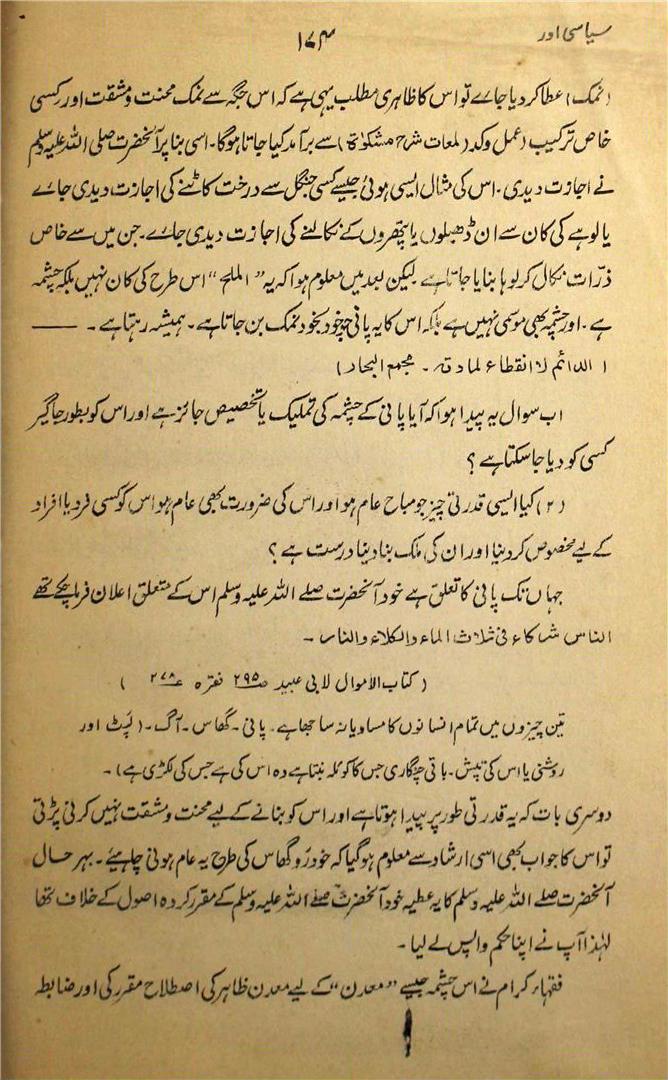 سیاسی اور
۱۷۴
(نمک) عطا کر دیا جاے تو اس کا ظاہری مطلب یہی ہے کہ اس جگہ سے نمک محنت و مشقت اور کسی
خاص ترکیب (عمل وکد (لمعات شرح مشکوٰۃ) سے برآمد کیا جاتا ہوگا۔ اسی بنا پر آنحضرت صلی اللہ علیہ وسلم
نے اجازت دیدی۔ اس کی مثال ایسی ہوئی جیسے کسی جنگل سے درخت کاٹنے کی اجازت دیدی جاے
یا لوہے کی کان سے ان ڈھیلوں یا پتھروں کے نکالنے کی اجازت دیدی جاے۔ جن میں سے خاص
ذرّات نکال کر لوہا بنایا جاتا ہے لیکن بعد میں معلوم ہوا کہ یہ "الملح" اس طرح کی کان نہیں بلکہ چشمہ
ہے۔ اور چشمہ بھی موسمی نہیں ہے بلکہ اس کا یہ پانی خود بخود نمک بن جاتا ہے۔ ہمیشہ رہتا ہے۔ ——
(الدائم لا انقطاع لمادتہ۔ مجمع البحار)
اب سوال یہ پیدا ہوا کہ آیا پانی کے چشمہ کی تملیک یا تخصیص جائز ہے اور اس کو بطور جاگیر
کسی کو دیا جا سکتا ہے؟
(۲) کیا ایسی قدرتی چیز جو مباح عام ہو اور اس کی ضرورت بھی عام ہو اس کو کسی فرد یا افراد
کے لیے مخصوص کر دینا اور ان کی ملک بنا دینا درست ہے؟
جہاں تک پانی کا تعلق ہے خود آنحضرت صلے اللہ علیہ وسلم اس کے متعلق اعلان فرما چکے تھے
الناس شرکاء فی ثلاث الماء والکلاء والنار۔
(کتاب الاموال لابی عبید ص۲۹۵ فقرہ ع۲۷۸)
تین چیزوں میں تمام انسانوں کا مساویانہ ساجھا ہے۔ پانی۔ گھاس۔ آگ۔ (لپٹ اور
روشنی یا اس کی تپش۔ باقی چنگاری جس کا کوئلہ بنتا ہے وہ اس کی ہے جس کی لکڑی ہے)۔
دوسری بات کہ یہ قدرتی طور پر پیدا ہوتا ہے اور اس کو بنانے کے لیے محنت و مشقت نہیں کرنی پڑتی
تو اس کا جواب بھی اسی ارشاد سے معلوم ہو گیا کہ خود رو گھاس کی طرح یہ عام ہونی چاہیئے۔ بہر حال
آنحضرت صلے اللہ علیہ وسلم کا یہ عطیہ خود آنحضرت صلے اللہ علیہ وسلم کے مقرر کردہ اصول کے خلاف تھا
لہٰذا آپ نے اپنا حکم واپس لے لیا۔
فقہاء کرام نے اس چشمہ جیسے "معدن" کے لیے معدن ظاہر کی اصطلاح مقرر کی اور ضابطہ